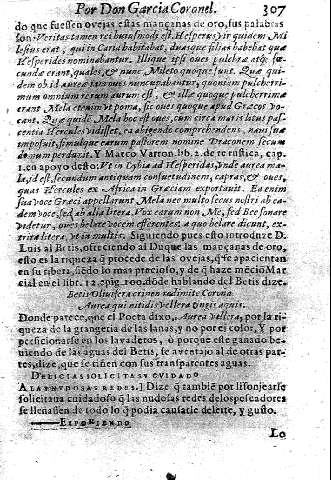 Por Don Garcia Coronel. 307
do que fuessen ovejas estas mançanas de oro, sus palabras
son: Veritas tamen rei huiusmodi est. Hesperus vir quidem Mi
lesius erat, qui in Caria habitabat, duasque filias habebat quæ
Hesperides nominabantur. Illique ipsi oues pulchræ atq; fœ-
cundæ erant, quales, & nunc Mileto quoque sunt. Quæ qui-
dem ob id aureæ oues nuncupabantur, quoniam pulcherri-
mum omnium rerum aurum est, & illæ quoque pulcherrimæ
erant Mela etenim vt poma, sic oues quoque apud Græcos vo-
cant. Quæ quidẽ Mela hoc est oues, cum circa maris litus pas-
centia Hercules vidisset, ea abigendo comprehendens, naui suæ
imposuit, simulque earum pastorem nomine Draconem secum
domum perduxit. Y Marco Varron. lib. 2. de re rustica, cap.
1. en apoyo desto: Et in Lybia ad Hesperidas, vnde aurea ma-
la, id est, secundum antiquam consuetudinem, capras, & oues,
quas Hercules ex Africa in Græciam exportauit. Ea enim
sua voce Græci appellarunt Mela nec multo secus nostri ab ea-
dem voce, sed ab alia litera. Vox earum non Me, sed Bee sonare
videtur, oues belare vocem efferentes: à quo belare dicunt, ex-
trita litera, vt in multis. Siguiendo pues esto introduze D.
Luis al Betis, ofreciendo al Duque las mançanas de oro,
esto es la riqueza q̃ procede de las ovejas, q̃ se apacientan
en su ribera, siẽdo lo mas precioso, y de q̃ haze mẽciõ Mar
cial en el libr. 12. epig. 100. dõde hablando del Betis dize.
Betis Oliuifera crinem redimite Corona
Aurea qui nitidis vellera tingis aquis.
Donde parece, que el Poeta dixo, Aurea vellera, por la ri-
queza de la grangeria de las lanas, y no por el color, Y por
perficionarse en los lavaderos, ò porque este ganado be-
uiendo de las aguas del Betis, se aventajo al de otras par-
tes, dize, que se tiñen con sus transparentes aguas.
DELICIAS SOLICITA SV CVIDADO
A LAS NVDOSAS REDES.] Dize q̃ tambiẽ por lisonjearse
solicitaua cuidadoso q̃ las nudosas redes de los pescadores
se llenassen de todo lo q̃ podia causarle deleite, y gusto.
EXPONIENDO
Lo